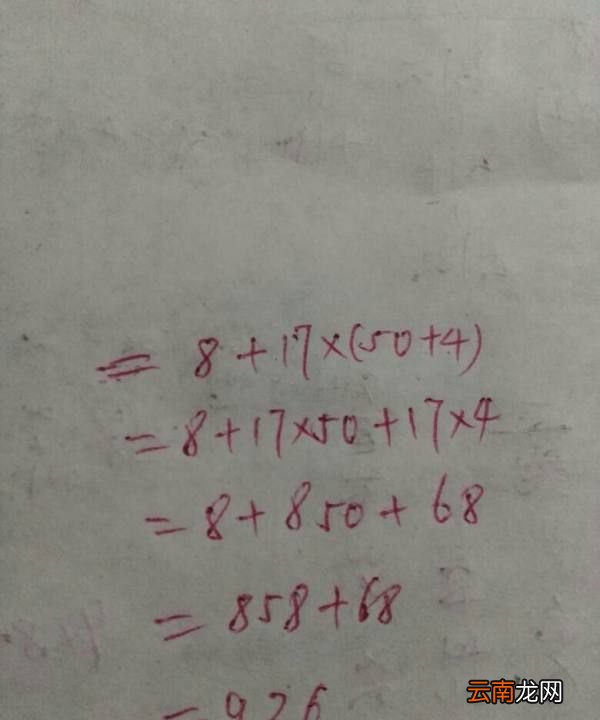 = 8+17×(50+4)
=8+17×50+17×4
=8+850+68
=858+68
=926
云南龙网